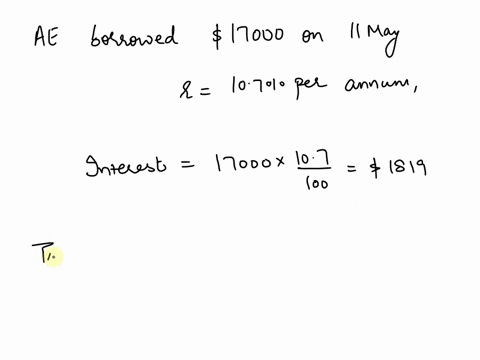 AE borrowed $17000 on 11 May
r = 10.7% per annum,
Interest = 17000 × 10.7/100 = $1819